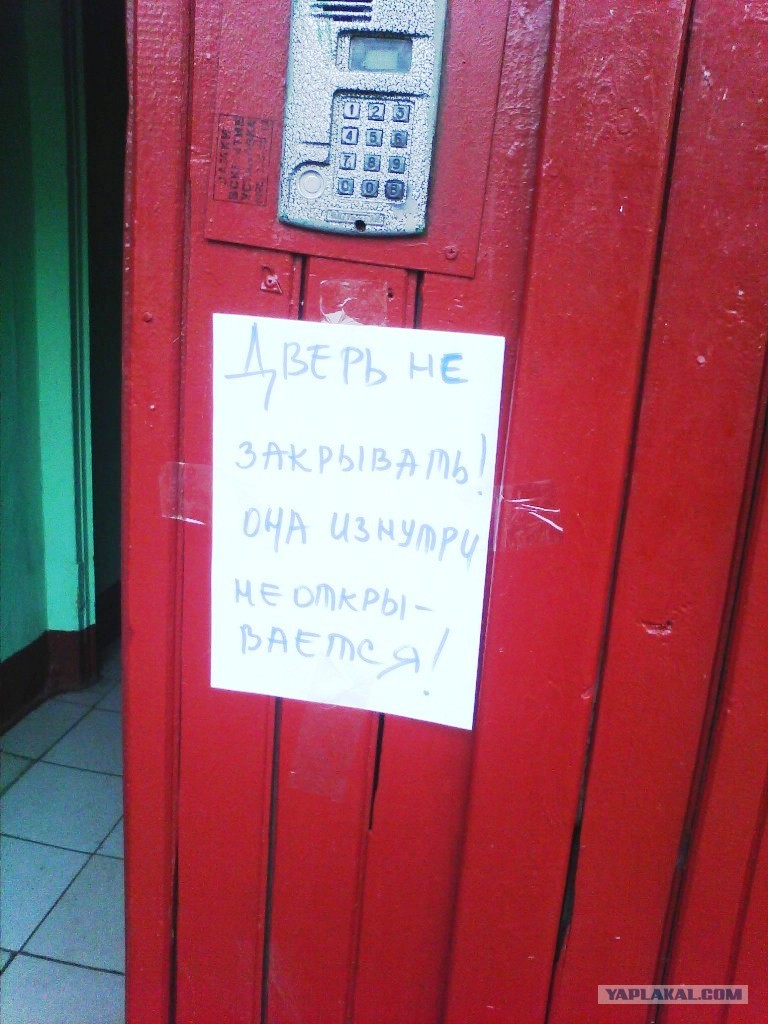 1 2 3
4 5 6
7 8 9
C 0 B
ДВЕРЬ НЕ
ЗАКРЫВАТЬ!
ОНА ИЗНУТРИ
НЕ ОТКРЫ-
ВАЕТСЯ!
YAPLAKAL.COM